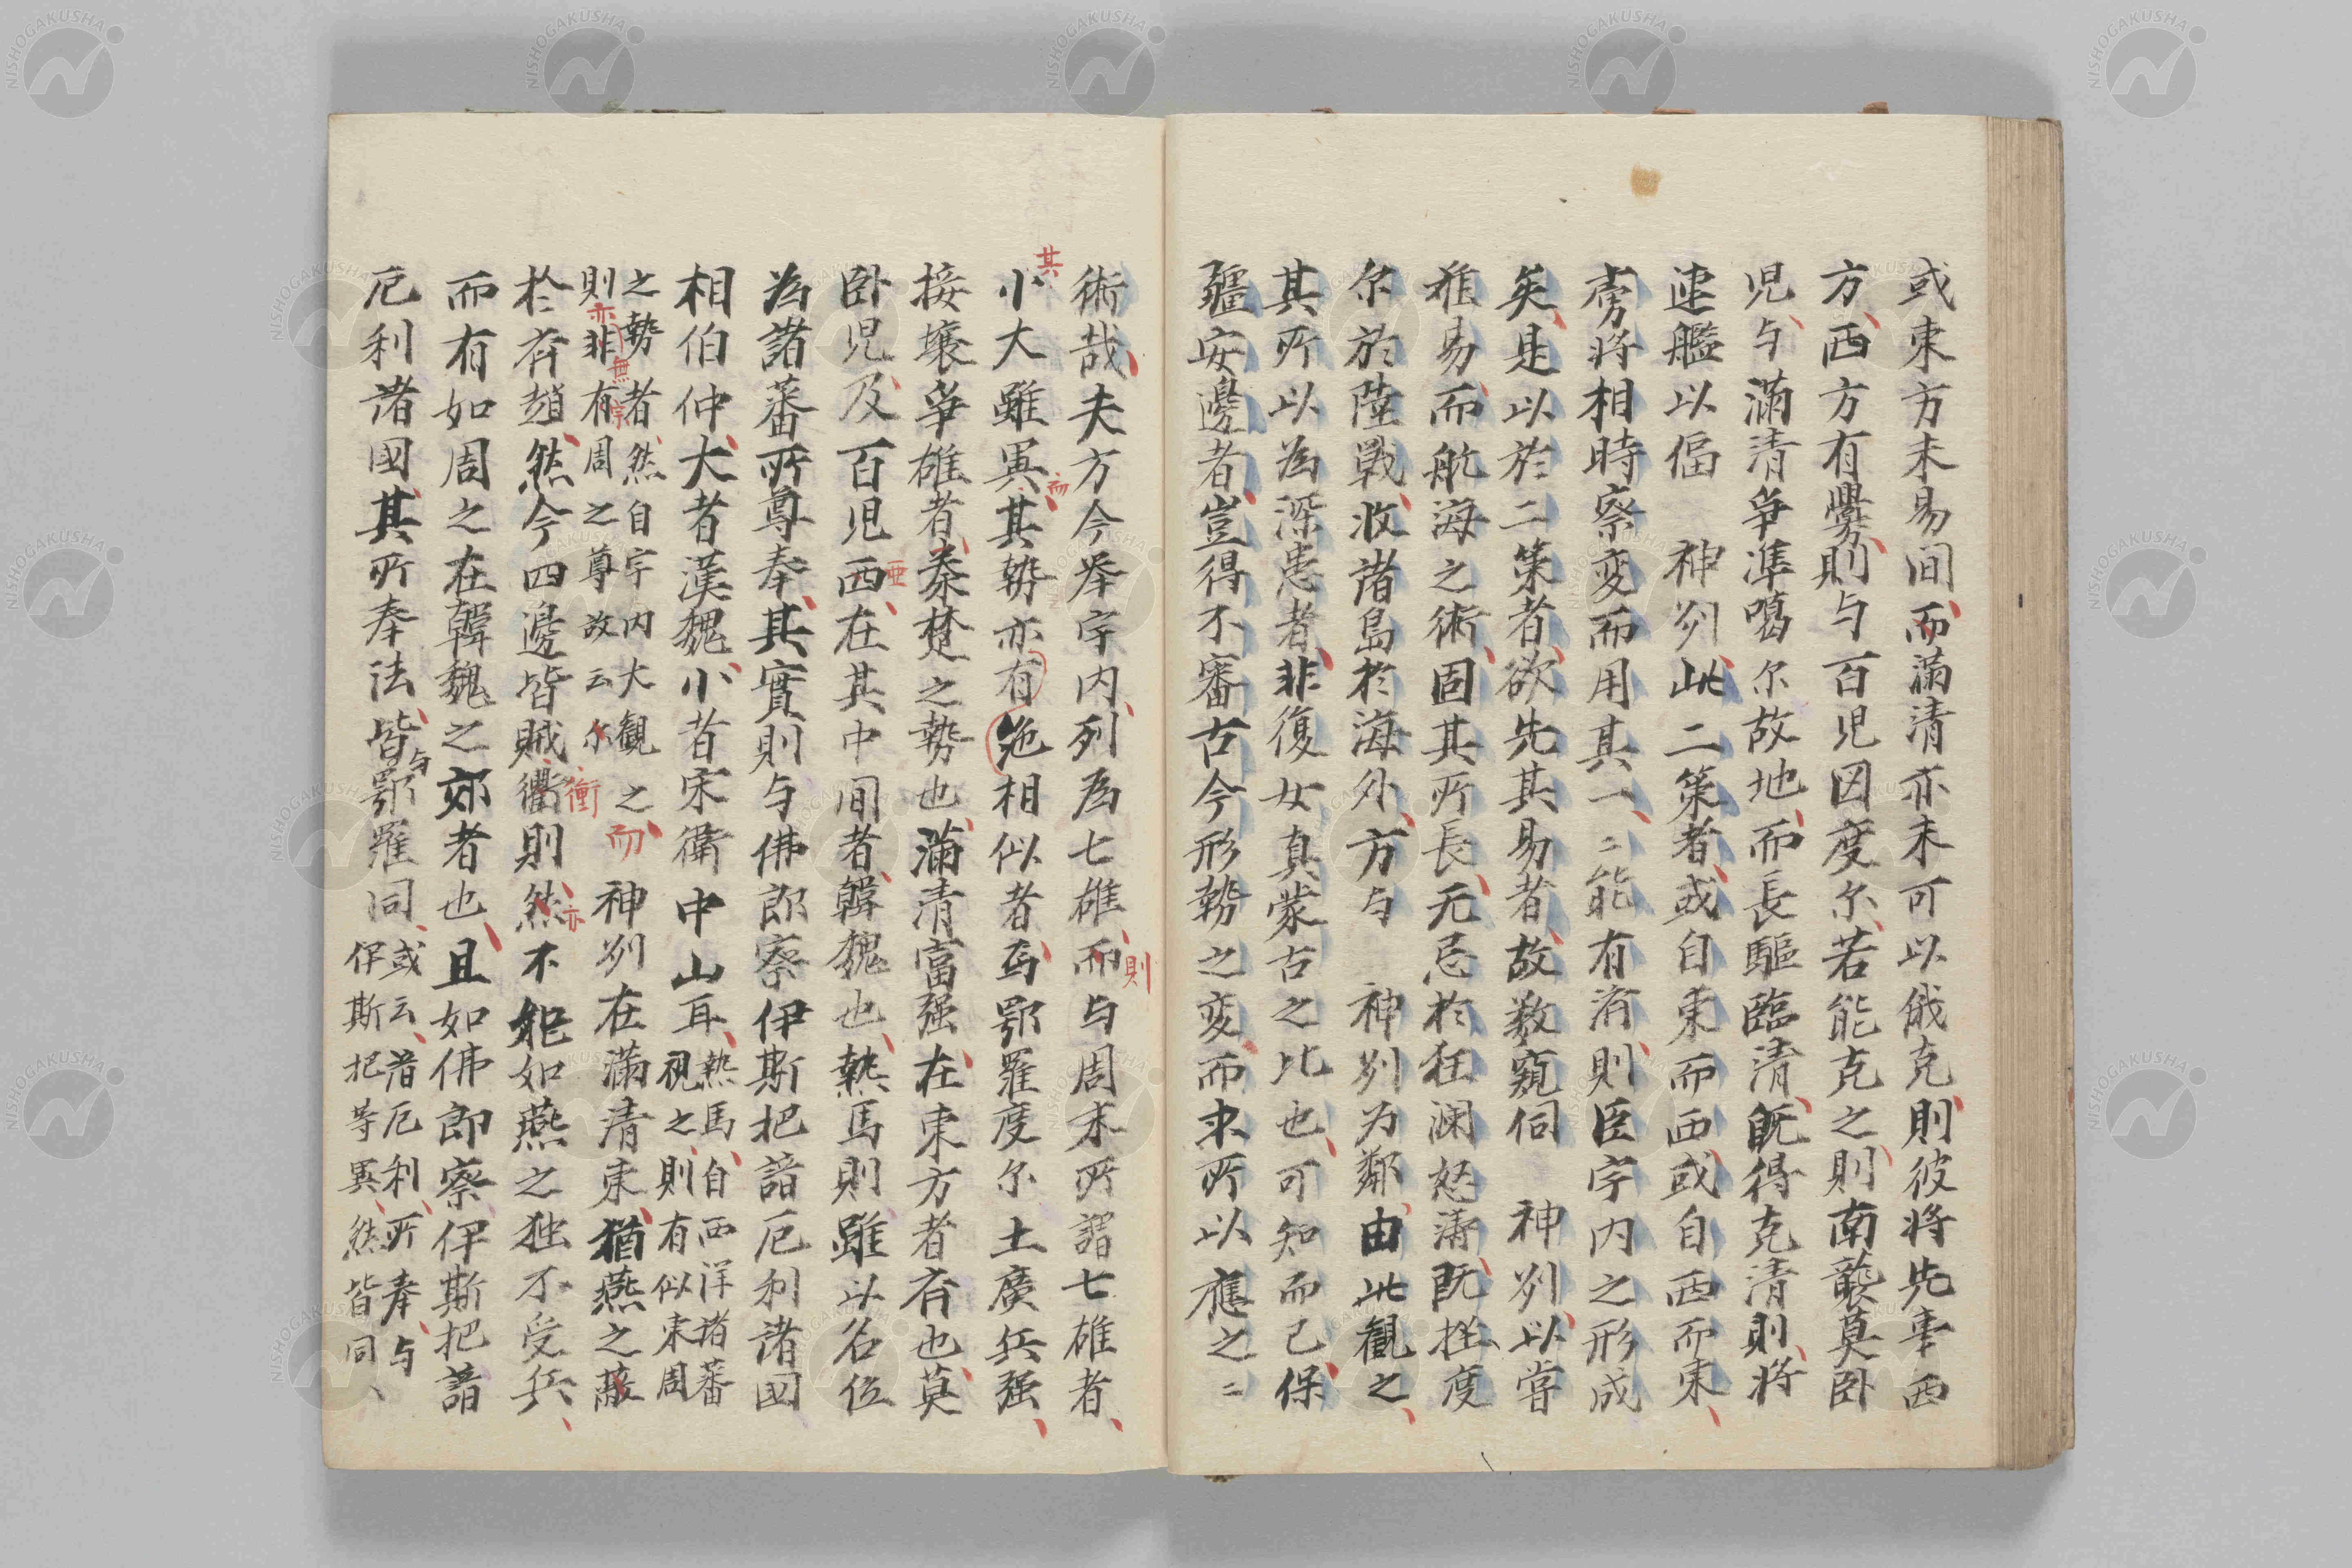 或東方未易間而滿清亦未可以俄克則彼将先事西
方西方有釁則与百児因度尓若能克之則南襲莫卧
児与滿清争準噶尓故地而長驅臨清既得克清則将
連艦以偪　神州此二策者或自東而西或自西而東
虜将相時察变而用其一〻能有濟則臣宇内之形成
矣是以於二策者欲先其易者故数窺伺　神州以嘗
难易而航海之術固其所長无忌於狂瀾怒濤既挫度
尓於陸戰收諸島於海外方与　神州为鄰由此観之
其所以為深患者非復女真蒙古之比也可知而已保
疆安邊者豈得不審古今形勢之变而求所以應之〻
術哉夫方今举宇内列為七雄而与周末所謂七雄者
則
其
小大雖異其勢亦有絶相似者焉鄂羅度尓土廣兵强
而
接壤争雄者秦楚之勢也滿清富强在東方者斉也莫
卧児及百児西在其中間者韓魏也熱馬則雖以名位
亜
為諸蕃所尊奉其實則与佛郎察伊斯把諳厄利諸国
相伯仲大者漢魏小者宋衛中山耳熱馬自西洋諸蕃
視之則有似東周
之勢者然自宇内大観之而　神州在滿清東猶燕之蔽
則非有周之尊故云尓
亦
無
字
於斉趙然今四邊皆賊衢則然不能如燕之独不受兵
衝
亦
而有如周之在韓魏之郊者也且如佛郎察伊斯把諳
厄利諸國其所奉法皆与鄂羅同或云諳厄利所奉与
伊斯把等異然皆同